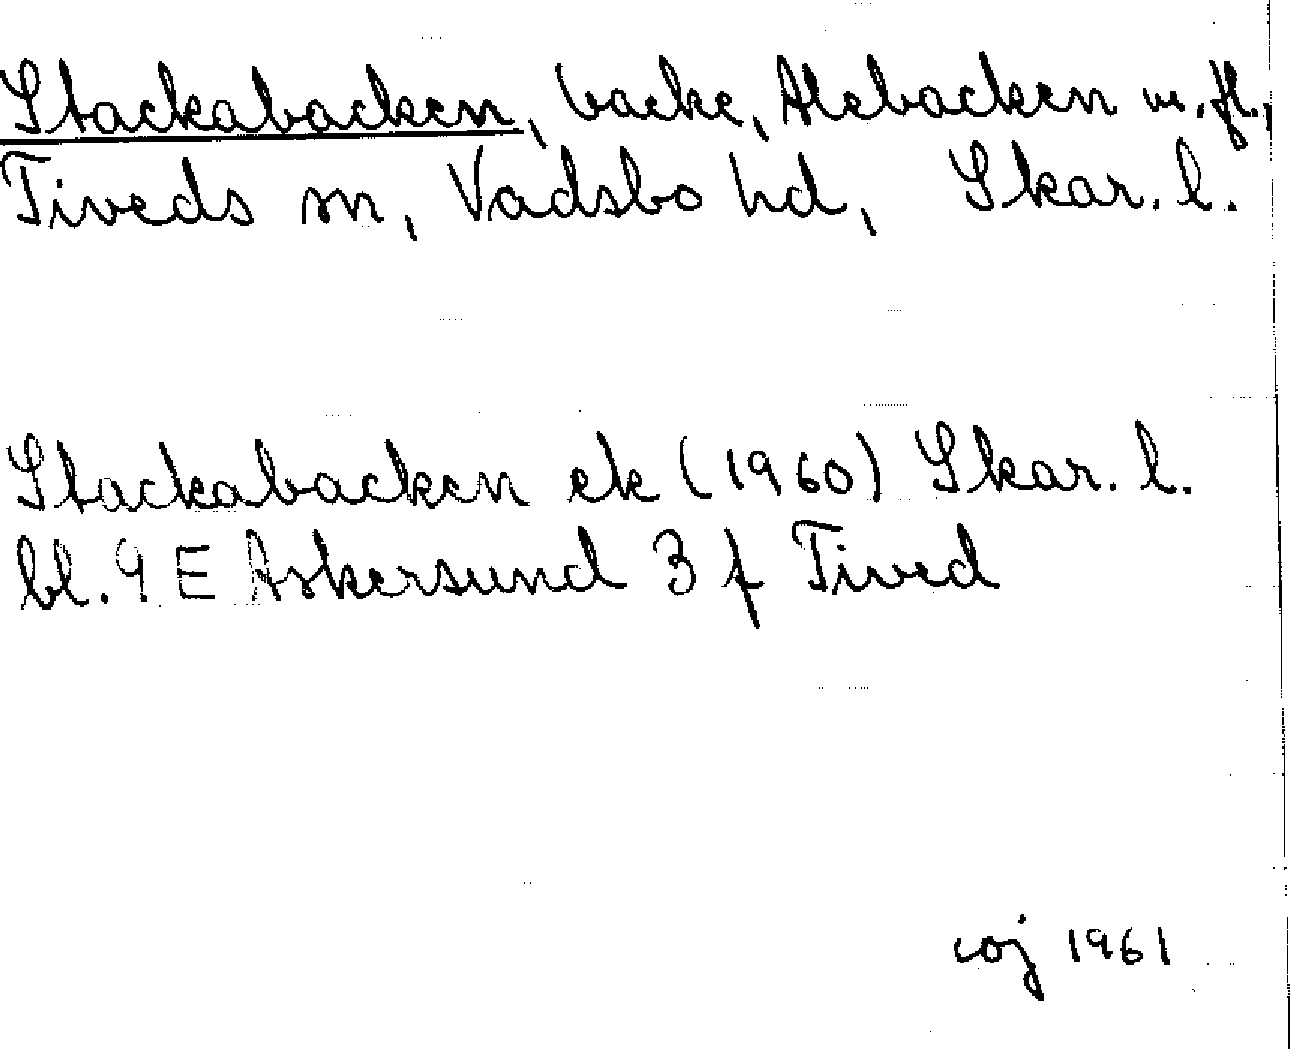 Stackabacken, backe, Alebacken m. fl.,
Tiveds sn, Vadsbo hd, Skar. l.
Stackabacken ek (1960) Skar. l.
bl. 9 E Askersund 3 f Tived
coj 1961